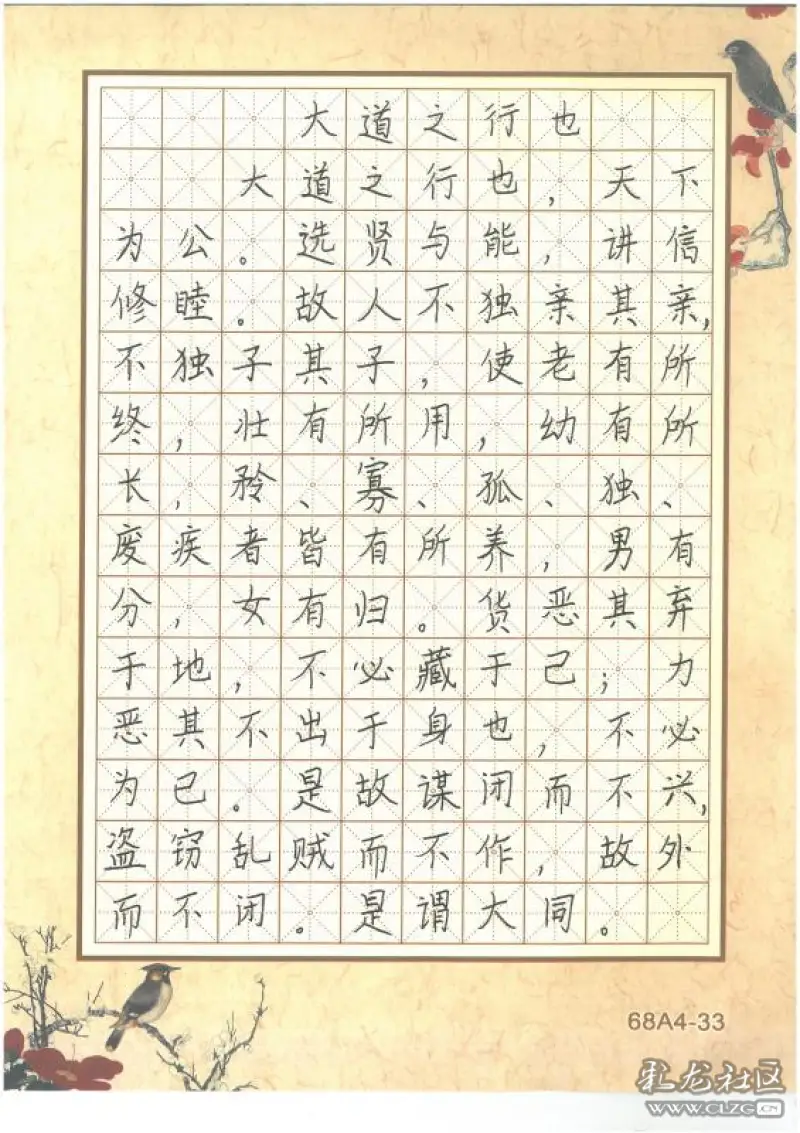 大道之行也
大道之行也，天下
为公。选贤与能，讲信
修睦。故人不独亲其亲，
不独子其子，使老有所
终，壮有所用，幼有所
长，矜、寡、孤、独、
废疾者皆有所养，男有
分，女有归。货恶其弃
于地，不必藏于己；力
恶其不出于身也，不必
为己。是故谋闭而不兴，
盗窃乱贼而不作，故外
而不闭。是谓大同。
68A4-33
彩龙社区
WWW.CLZG.CN